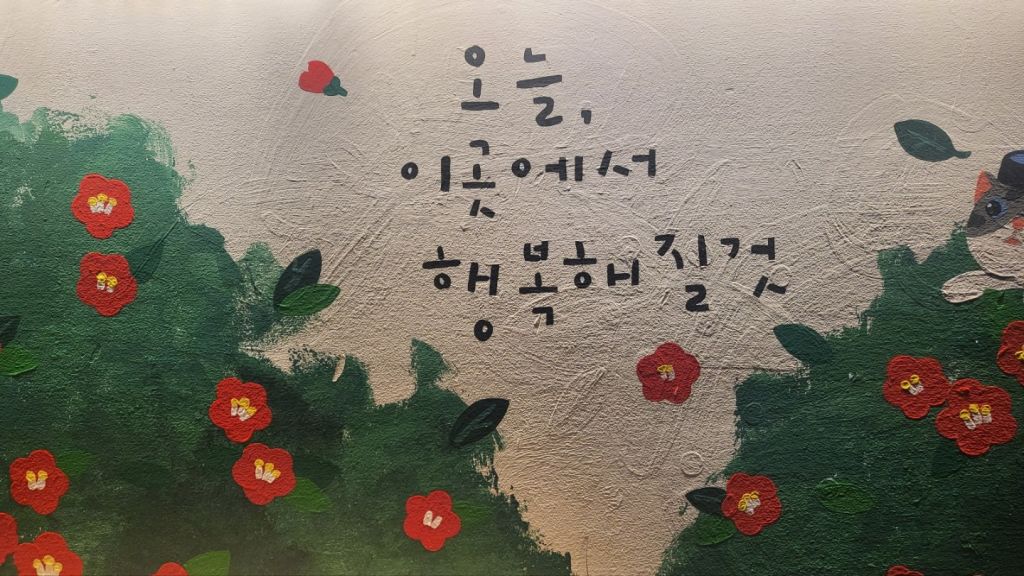 오늘,
이곳에서
행복해질것